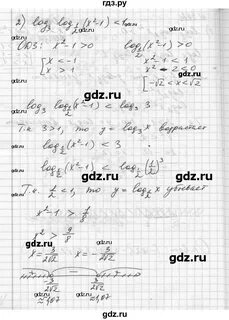 2) log₃ log_{1/2} (x²-1) < 1
ОДЗ: x²-1 > 0    log_{1/2} (x²-1) > 0
[ x < -1    x²-1 < 1
[ x > 1    x²-2 < 0
[ -√2 < x < √2
log₃ log_{1/2} (x²-1) < log₃ 3
Т.к. 3>1, то y = log₃ x возрастает
log_{1/2} (x²-1) < 3
log_{1/2} (x²-1) < log_{1/2} (1/2)³
Т.к. 1/2 < 1, то y = log_{1/2} x убывает
x²-1 > 1/8
x² > 9/8
x = 3/(2√2)    x = -3/(2√2)
-3/(2√2)    3/(2√2)
≈ 1,07    ≈ 1,07
gdz.ru
gdz.ru
gdz.ru
gdz.ru
gdz.ru
gdz.ru
gdz.ru
gdz.ru